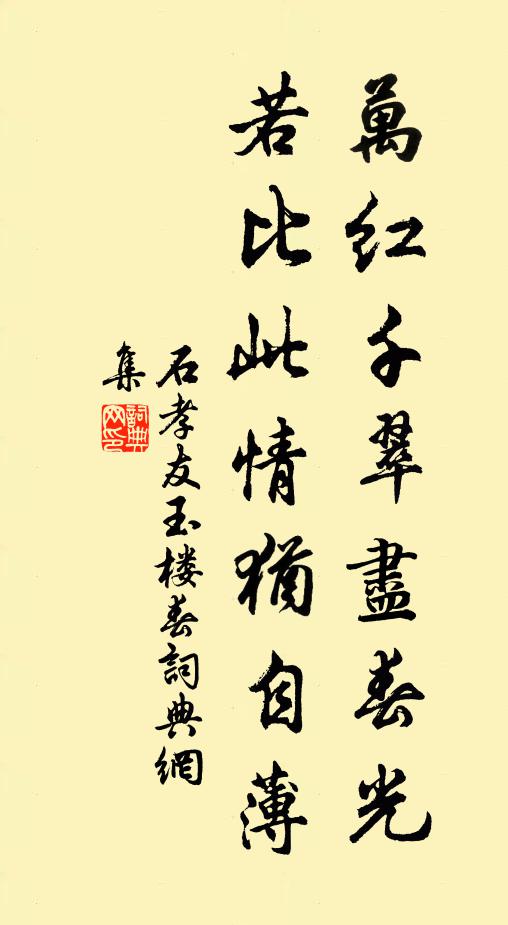 萬紅千翠盡春光
若比此情猶自薄
石孝友玉楼春詞典網
集
詞典
网印